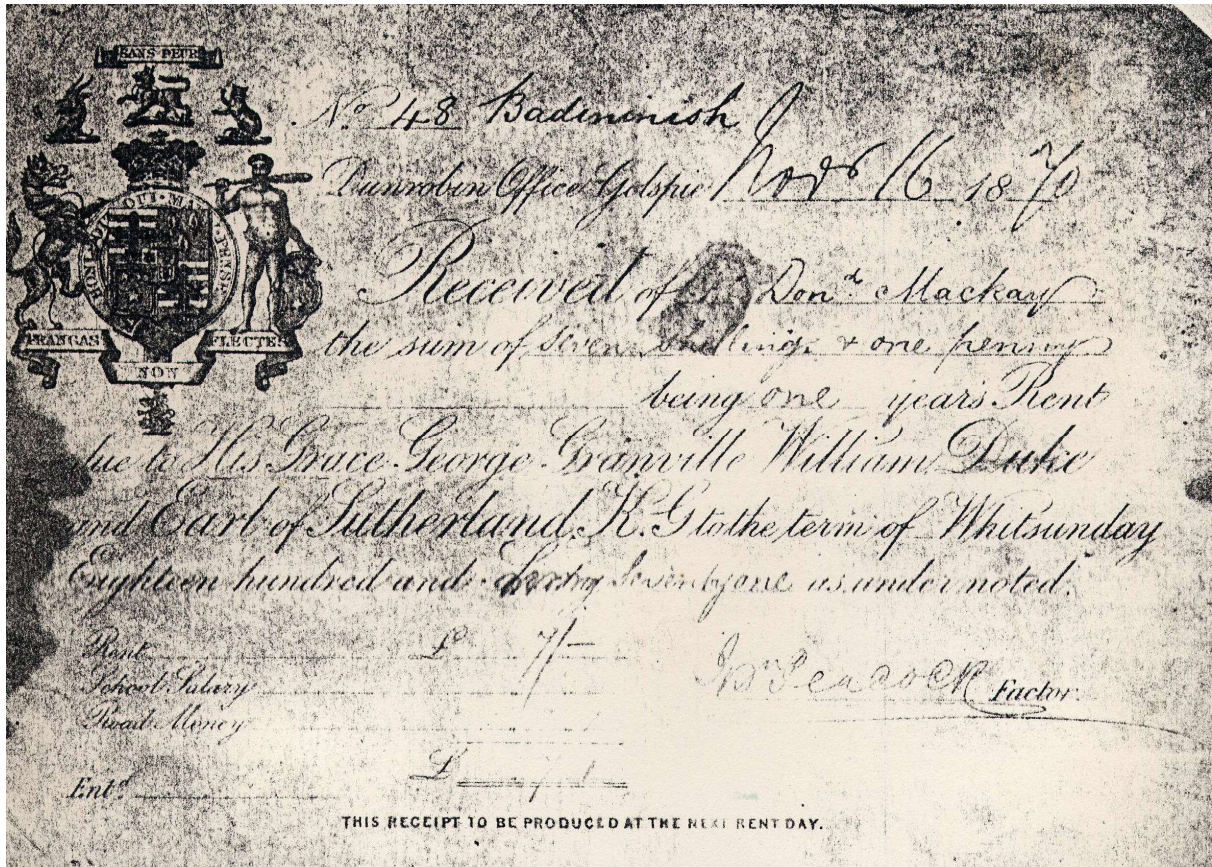 SANS PEUR
No 48 Badininish
Dunrobin Office Golspie Novr 16 1870
HONI SOIT QUI MAL Y PENSE
Received of Dond Mackay
FRANGAS NON FLECTES
the sum of seven shillings & one penny
being one years Rent
due to His Grace George Granville William Duke
and Earl of Sutherland K.G to the term of Whitsunday
Eighteen hundred and Seventy one as under noted.
Rent £ 7/-
School Salary
Road Money
Factor.
£
Entd
THIS RECEIPT TO BE PRODUCED AT THE NEXT RENT DAY.